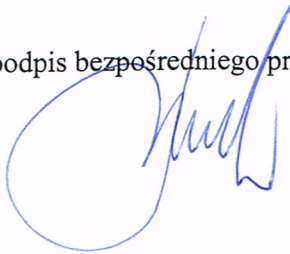 podpis bezpośredniego pr